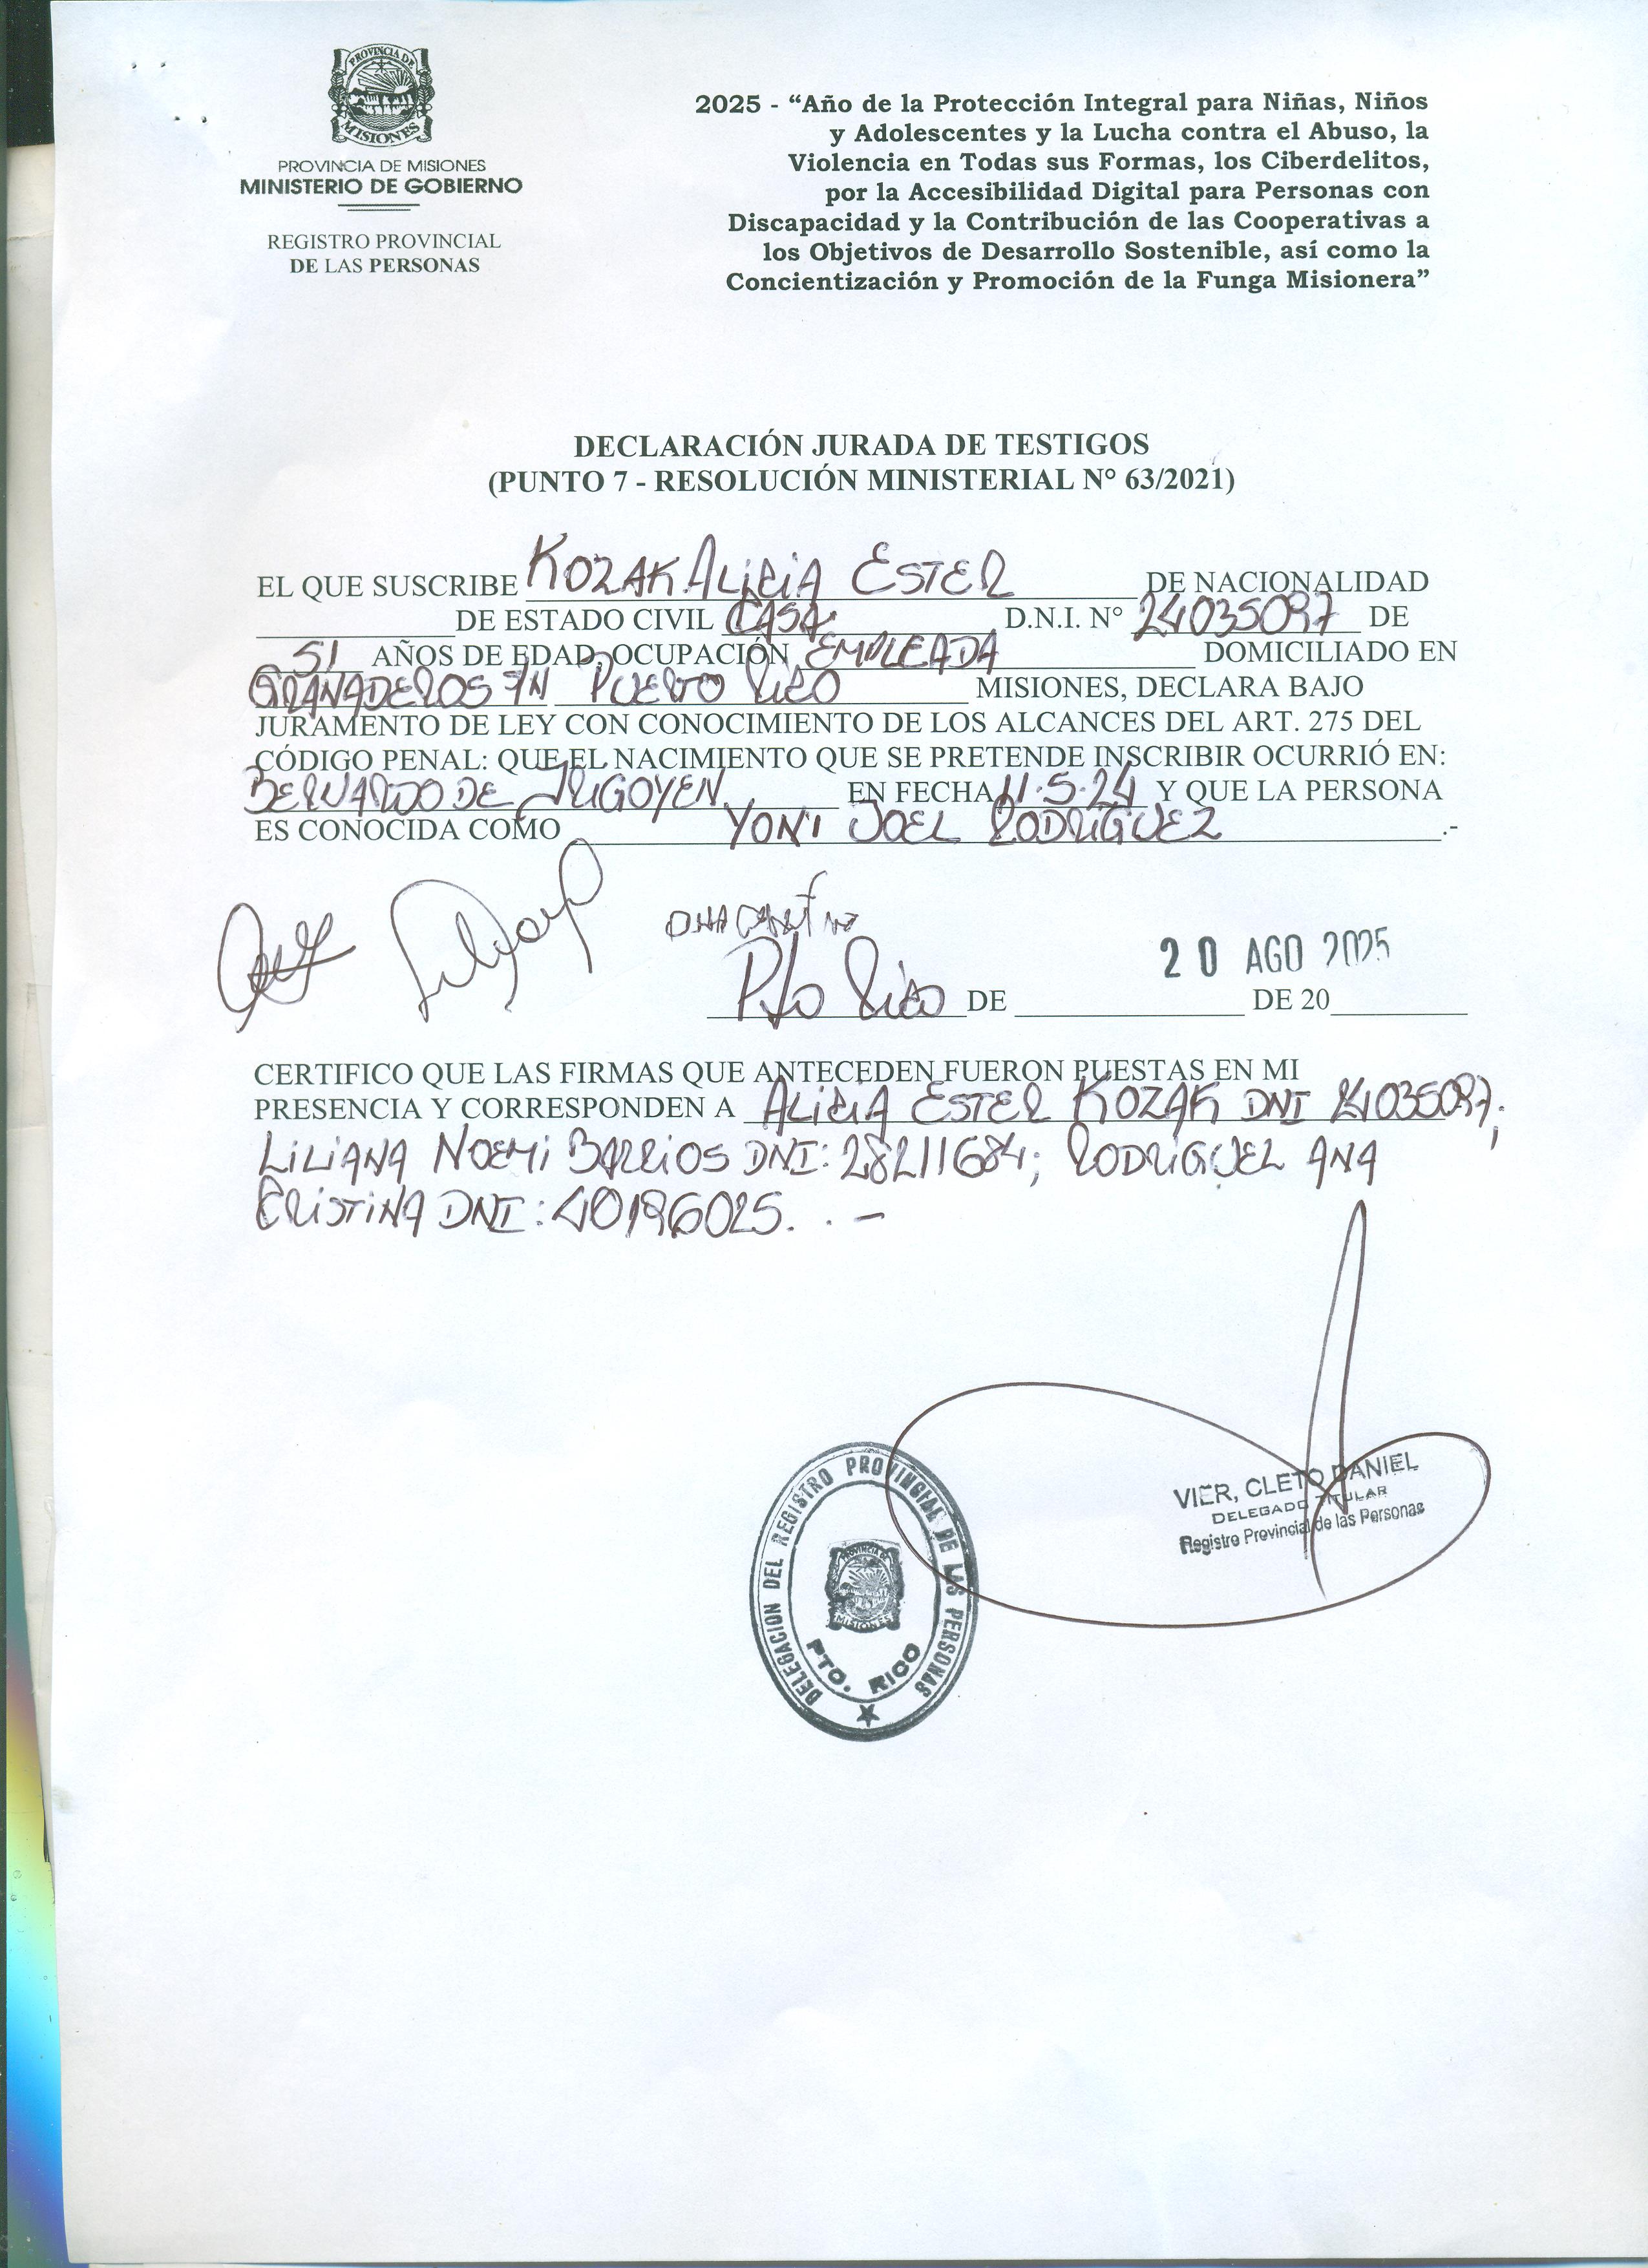 PROVINCIA DE
MISIONES
PROVINCIA DE MISIONES
MINISTERIO DE GOBIERNO
REGISTRO PROVINCIAL
DE LAS PERSONAS
2025 - “Año de la Protección Integral para Niñas, Niños
y Adolescentes y la Lucha contra el Abuso, la
Violencia en Todas sus Formas, los Ciberdelitos,
por la Accesibilidad Digital para Personas con
Discapacidad y la Contribución de las Cooperativas a
los Objetivos de Desarrollo Sostenible, así como la
Concientización y Promoción de la Funga Misionera”
DECLARACIÓN JURADA DE TESTIGOS
(PUNTO 7 - RESOLUCIÓN MINISTERIAL N° 63/2021)
EL QUE SUSCRIBE KOZAK ALICIA ESTER DE NACIONALIDAD
DE ESTADO CIVIL CASA. D.N.I. N° 24035097 DE
51 AÑOS DE EDAD, OCUPACIÓN EMPLEADA DOMICILIADO EN
GRANADEROS S/N PUERTO RICO MISIONES, DECLARA BAJO
JURAMENTO DE LEY CON CONOCIMIENTO DE LOS ALCANCES DEL ART. 275 DEL
CÓDIGO PENAL: QUE EL NACIMIENTO QUE SE PRETENDE INSCRIBIR OCURRIÓ EN:
BERNARDO DE IRIGOYEN EN FECHA 11.5.24 Y QUE LA PERSONA
ES CONOCIDA COMO YONI JOEL RODRIGUEZ .-
20 AGO 2025
Pto Rico DE DE 20
CERTIFICO QUE LAS FIRMAS QUE ANTECEDEN FUERON PUESTAS EN MI
PRESENCIA Y CORRESPONDEN A ALICIA ESTER KOZAK DNI 24035097;
LILIANA NOEMI BARRIOS DNI: 28211684; RODRIGUEZ ANA
CRISTINA DNI: 40196025. . -
VIER, CLETO DANIEL
DELEGADO TITULAR
Registro Provincial de las Personas
DELEGACION DEL REGISTRO PROVINCIAL DE LAS PERSONAS
PROVINCIA DE
MISIONES
PTO. RICO